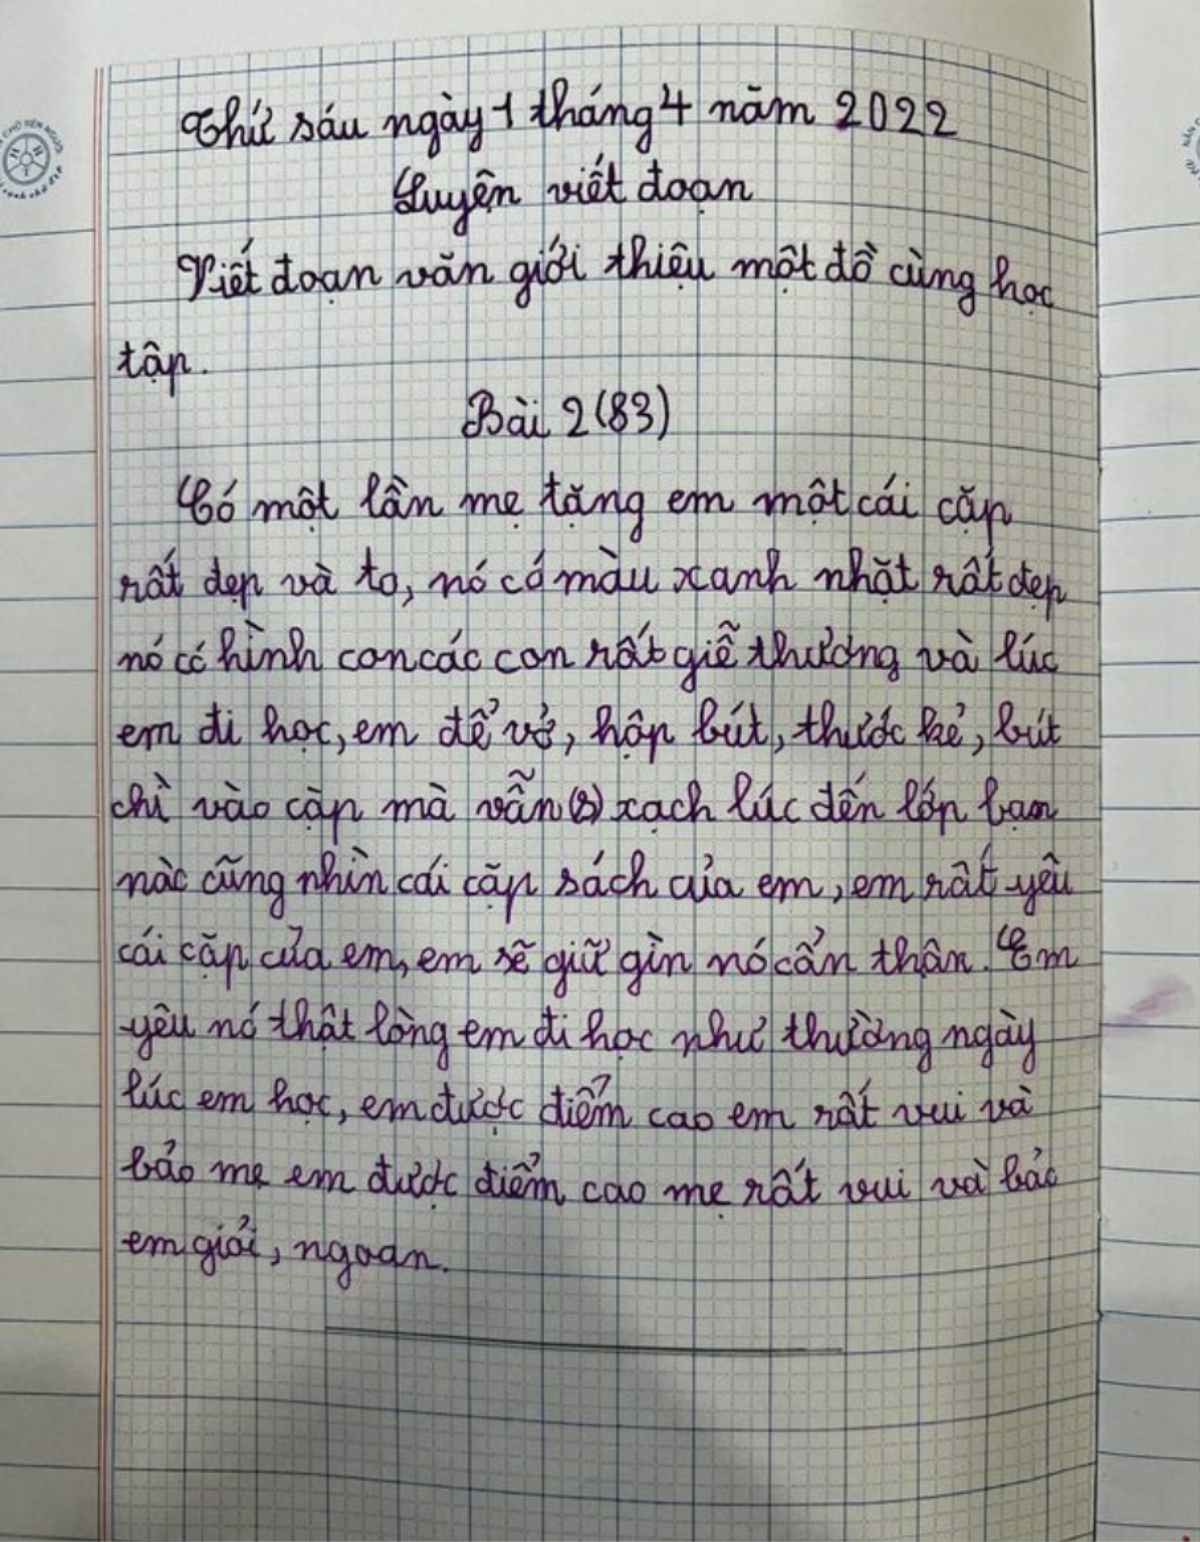 Thứ sáu ngày 1 tháng 4 năm 2022
Luyện viết đoạn
Viết đoạn văn giới thiệu một đồ cùng học
tập.
Bài 2 (83)
Có một lần mẹ tặng em một cái cặp
rất đẹp và to, nó có màu xanh nhặt rất đẹp
nó có hình con các con rất giễ thương và lúc
em đi học, em để vở, hộp bút, thước kẻ, bút
chì vào cặp mà vẫn xạch lúc đến lớp bạn
nào cũng nhìn cái cặp sách của em, em rất yêu
cái cặp của em, em sẽ giữ gìn nó cẩn thận. Em
yêu nó thật lòng em đi học như thường ngày
lúc em học, em được điểm cao em rất vui và
bảo mẹ em được điểm cao mẹ rất vui và bảo
em giỏi, ngoan.